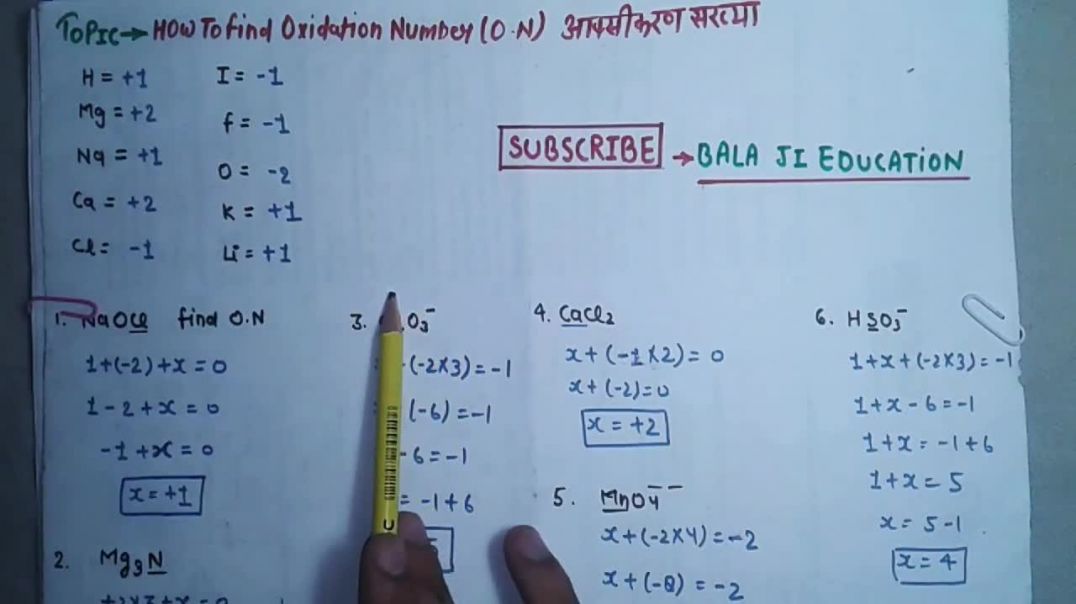 TOPIC→ HOW To find Oxidation Number (O.N) आक्सीकरण संख्या
H = +1
Mg = +2
Na = +1
Ca = +2
Cl = -1
I = -1
f = -1
O = -2
K = +1
Li = +1
SUBSCRIBE → BALA JI EDUCATION
1. NaOCl find O.N
1+(-2)+x=0
1-2+x=0
-1+x=0
x=+1
2. Mg3N
3. O3-
(-2x3)=-1
(-6)=-1
-6=-1
= -1+6
4. CaCl2
x+(-1x2)=0
x+(-2)=0
x=+2
5. MnO4--
x+(-2x4)=-2
x+(-8)=-2
6. HSO3-
1+x+(-2x3)=-1
1+x-6=-1
1+x=-1+6
1+x=5
x=5-1
x=4